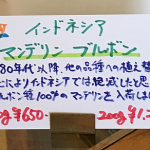 インドネシア
マンデリン ブルボン
80年代以降、他の品種への植え替
によりインドネシアでは絶滅したと思
ルボン種100%のマンデリンを入荷しま
g ¥650- 200g ¥1,2